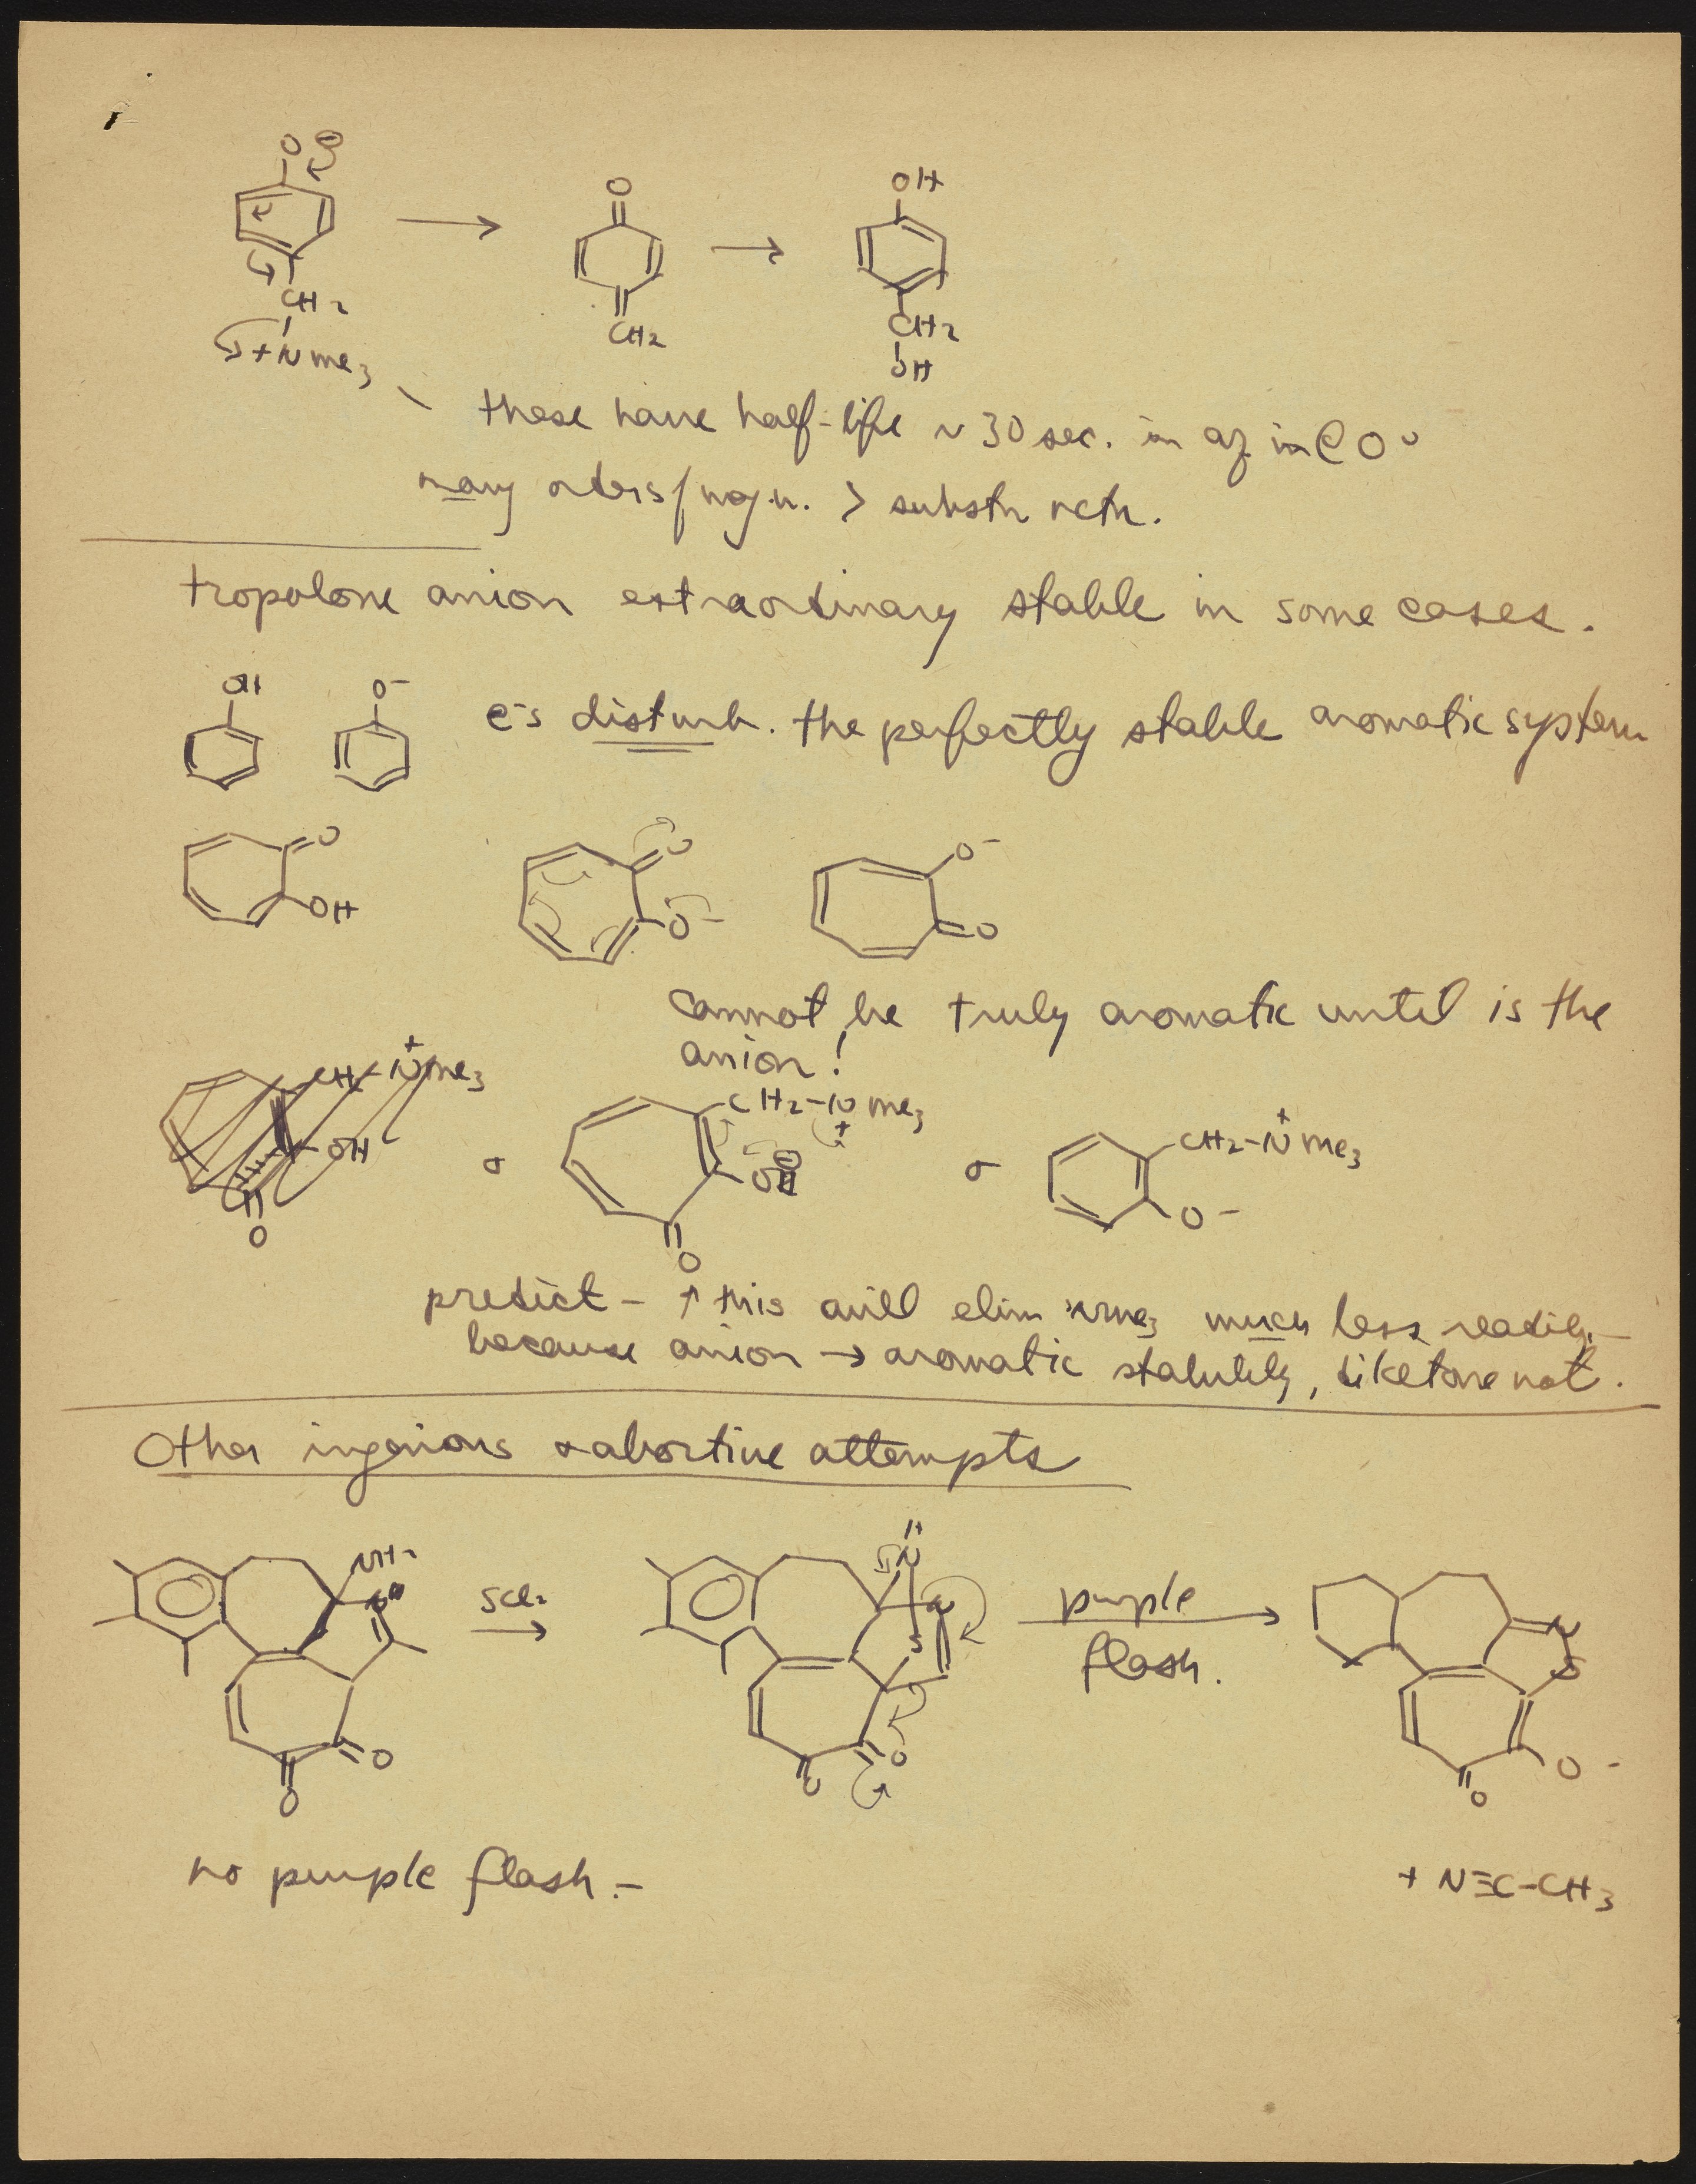 O ⊖
O
OH
CH2
CH2
CH2
+NMe3
OH
these have half-life ~ 30 sec. in aq in @ 0°
many orders / magn. > substn rctn.
tropolone anion extraordinary stable in some cases.
OH
O-
e-s disturb. the perfectly stable aromatic system
O
O
O-
OH
O-
O
cannot be truly aromatic until is the
anion!
CH-N+Me3
CH2-NMe3
+
CH2-N+Me3
OH
&
O⊖
&
O-
O
O
predict - ↑ this will elim NMe3 much less readily-
because anion → aromatic stability, diketone not.
Other ingenious & abortive attempts
NH2
SCl2
H
N
S
purple
flash.
N
S
O
O
O
O
O-
O
no purple flash.-
+ N≡C-CH3